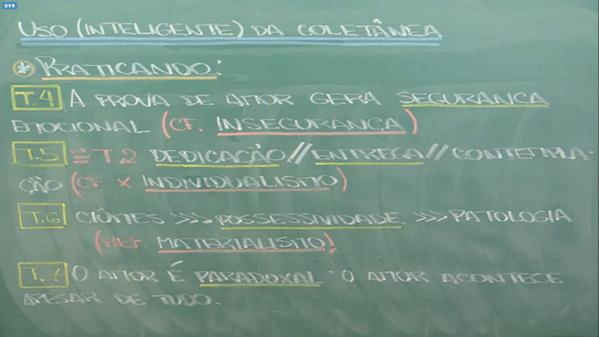 DVR
USO (INTELIGENTE) DA COLETÂNEA
* PRATICANDO:
T.4 A PROVA DE AMOR GERA SEGURANÇA
EMOCIONAL (CF. INSEGURANÇA)
T.5 ≅ T.2 DEDICAÇÃO // ENTREGA // CONTEMPLA-
ÇÃO (CF × INDIVIDUALISMO)
T.6 CIÚMES >>> POSSESSIVIDADE >>> PATOLOGIA
(REF. MATERIALISMO)
T.7 O AMOR É PARADOXAL: O AMOR ACONTECE
APESAR DE TUDO.